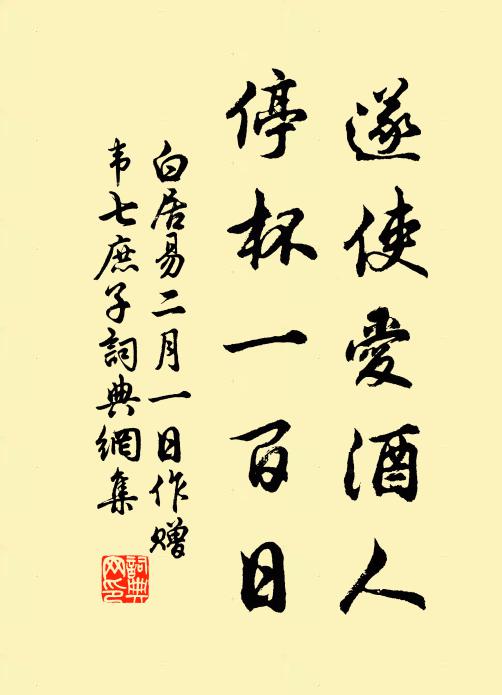 遂使愛酒人
停杯一百日
白居易二月一日作贈
韦七庶子詞典網集
詞典
网印